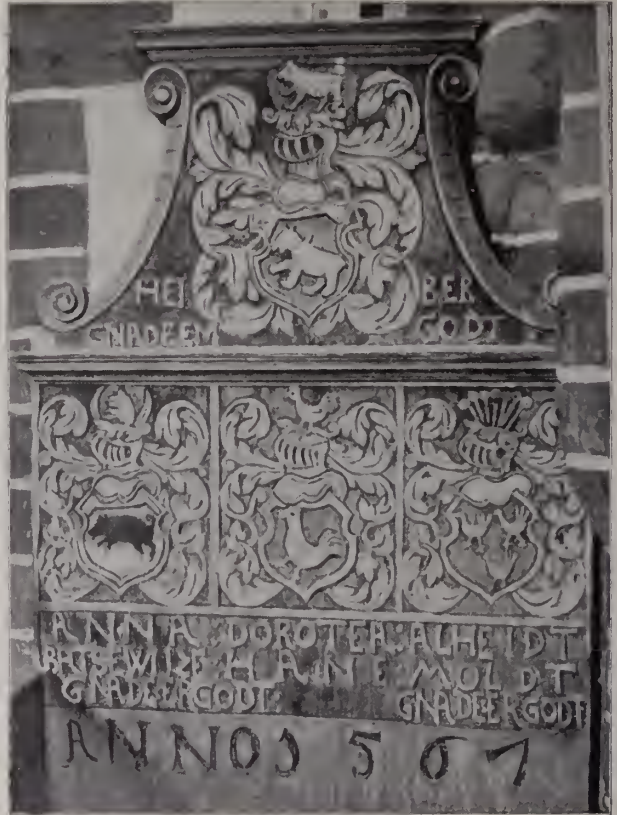 HEI BER
GNADEEM GODT
ANNA DOROTEA: ALHEIDT
HANE MOLDT
GNADEERGODT: GNADEERGODT
ANNO 1567